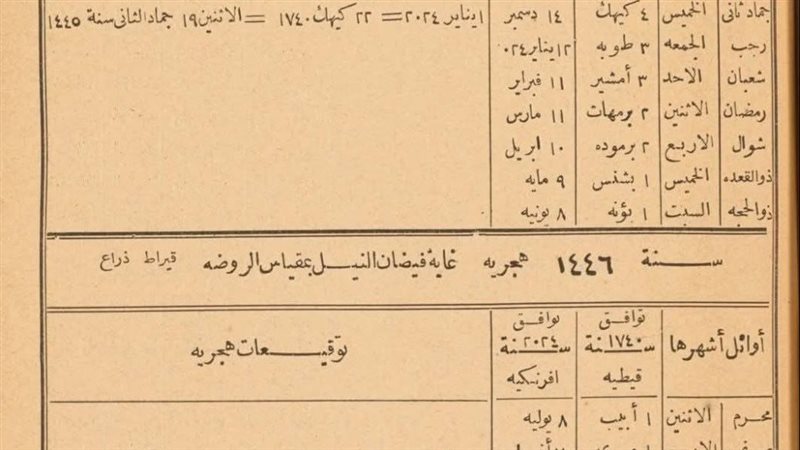 جمادثانى الخميس ٤ كيهك ١٤ دسمبر ١ يناير ٢٠٢٤ = ٢٢ كيهك ١٧٤٠ = الاثنين ١٩ جماد الثانى سنة ١٤٤٥
رجب الجمعه ٣ طوبه ١٢ يناير ٢٠٢٤
شعبان الاحد ٣ أمشير ١١ فبراير
رمضان الاثنين ٢ برمهات ١١ مارس
شوال الاربع ٢ برموده ١٠ ابريل
ذوالقعده الخميس ١ بشنس ٩ مايه
ذوالحجه السبت ١ بؤنه ٨ يونيه
سنة ١٤٤٦ هجريه غاية فيضان النيل بمقياس الروضه قيراط ذراع
أوائل أشهرها
توافق
١٧٤٠
سنة
قبطيه
توافق
٢٠٢٤
سنة
افرنكيه
توقيعات هجريه
محرم الاثنين ١ أبيب ٨ يوليه